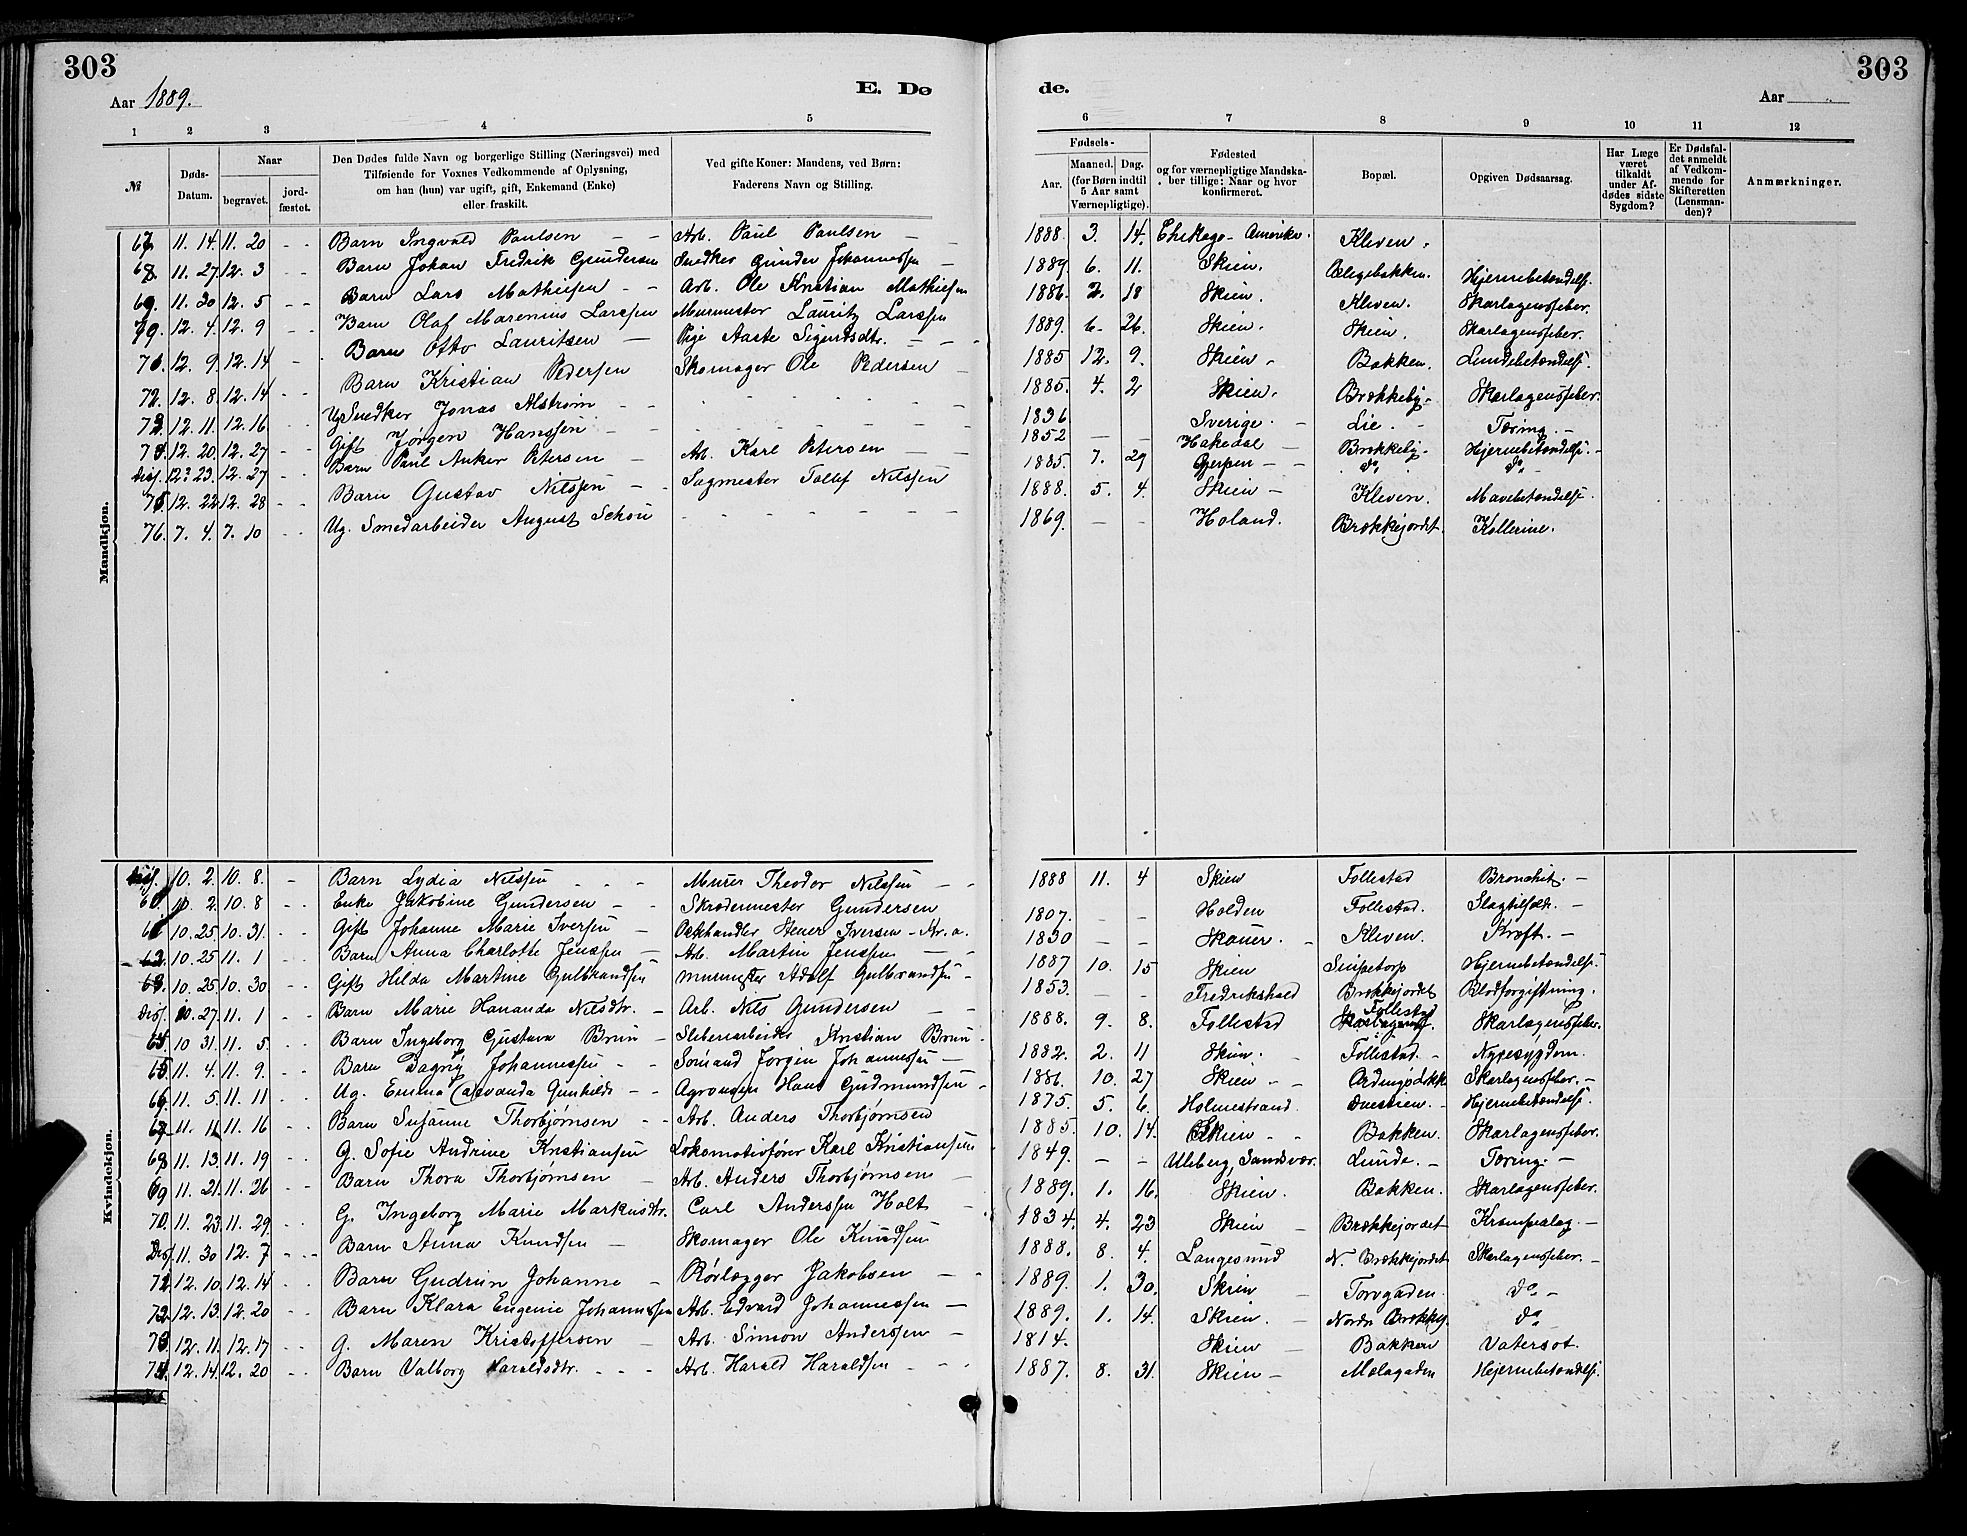 303
303
Aar 1889.
E. Dø
de.
Aar
1 2 3 4 5 6 7 8 9 10 11 12
№
Døds-Datum.
Naar
begravet.
jordfæstet.
Den Dødes fulde Navn og borgerlige Stilling (Næringsvei) med
Tilføiende for Voxnes Vedkommende af Oplysning,
om han (hun) var ugift, gift, Enkemand (Enke)
eller fraskilt.
Ved gifte Koner: Mandens, ved Børn:
Faderens Navn og Stilling.
Fødsels-
Aar.
Maaned. Dag.
(for Børn indtil
5 Aar samt
Værnepligtige).
Fødested
og for værnepligtige Mandska-
ber tillige: Naar og hvor
konfirmeret.
Bopæl.
Opgiven Dødsaarsag.
Har Læge
været
tilkaldt
under Af-
dødes sidste
Sygdom?
Er Dødsfal-
det anmeldt
af Vedkom-
mende for
Skifteretten
(Lensman-
den)?
Anmærkninger.
Mandkjøn.
67. 11. 14. 11. 20 - - Barn Ingvald Paulsen - - Arb. Paul Paulsen - - 1888. 3. 14. Chikago - Amerika. Kleven.
68. 11. 27. 12. 3 - - Barn Johan Fredrik Gundersen Snedker Gunder Johannessen - 1889. 6. 11. Skien. Ælegebakken. Hjernebetændelse.
69. 11. 30 12. 5 - - Barn Lars Mathiesen - - Arb. Ole Kristian Mathiesen 1886. 2. 18 Skien. Kleven. Skarlagensfeber.
70. 12. 4. 12. 9 - - Barn Olaf Marenius Larssen Murmester Lauritz Larssen 1889. 6. 26. Skien. Skien. Skarlagensfeber.
71. 12. 9. 12. 14 - Barn Otto Lauritsen - Pige Aaste Sigurdsdtr. - - 1885 12. 9. Skien. Bakken. Lundebetændelse.
72. 12. 8. 12. 14 - Barn Kristian Pedersen Skomager Ole Pedersen - 1885. 4. 2 Skien. Brækkeby. - Skarlagensfeber.
73. 12. 11. 12. 16 - - Ug. Snedker Jonas Alstrøm - - 1836 Sverige. - Lie. - Tæring. -
74. 12. 20. 12. 27 - - Gift Jørgen Hanssen - - 1852 - - Hakedal - Brækkeby. Hjernebetændelse. -
Disf. 12. 23. 12. 27 - - Barn Paul Anker Petersen - Arb. Karl Petersen - - 1885. 7. 29 Gjerpen - - do. do. -
75. 12. 22. 12. 28 - - Barn Gustav Nilssen - - Sagmester Tollef Nilssen 1888. 5. 4. Skien - Kleven. Mavebetændelse.
76. 7. 4. 7. 10 - - Ug. Smedarbeider August Schou - - - - - 1869. - - Holand. Brækkejordet. Kollerine.
Kvindekjøn.
Disf. 10. 2. 10. 8. - Barn Lydia Nilssen - - - Murer Theodor Nilssen - - 1888 11. 4 Skien Follestad Bronchit. -
60. 10. 2. 10. 8 - - Enke Jakobine Gundersen - - Skrædermester Gundersen 1807. - - Holden Follestad. Slagtilfælde. -
61. 10. 25. 10. 31. - - Gift Johanne Marie Iversen - Iversen - 1830 - - Skouer. - Kleven. Kræft. -
62. 10. 25 11. 1 - - Barn Anna Charlotte Jenssen - Arb. Martin Jenssen - - 1887 10. 15 Skien Snipetorp Hjernebetændelse.
63. 10. 25 10. 30 - - Gift Hilda Martine Gulbrandsen murmester Adolf Gulbrandsen - 1853. - - Fredrikshald Brækkejordet Blodforgiftning.
Disf. 10. 27. 11. 1 - - Barn Marie Hananda Nilsdtr. - Arb. Nils Gundersen - - 1888. 9. 8. Follestad Follestad Skarlagensfeber.
64 10 31 11. 5. - - Barn Ingeborg Gustava Bruun - Sliberiarbeider Kristian Bruun - 1882. 2. 11 Skien. - Follestad. - Nyresygdom.
65 11. 4. 11. 9. - - Barn Dagny Johannessen - - Sømand Jørgen Johannessen - 1886. 10. 27 Skien - - Skarlagensfeber. -
66. 11. 5. 11. 11 - - Ug. Emma Gunhilds - - Agronom Hans Gudmundsen - 1875. 5. 6. Holmestrand. Duestien. - Hjernebetændelse.
67 11. 11. 11. 16 - - Barn Susanne Thorbjørnsen - - Arb. Anders Thorbjørnsen 1885. 10. 14. Skien - - Bakken. Skarlagensfeber.
68 11. 13. 11. 19 - - G. Sofie Andrine Kristiansen Lokomotivfører Karl Kristiansen 1849. - - Ulleberg, Sandsvær. Lunde. - Tæring. -
69 11. 21. 11. 26 - - Barn Thora Thorbjørnsen - Arb. Anders Thorbjørnsen - 1889. 1. 16. Skien. Bakken. Skarlagensfeber.
70. 11. 23. 11. 29. - - G. Ingeborg Marie Markusdtr. Carl Anderssen Holt - 1834. 4. 23 Skien - Brækkejordet Krampeslag. -
Disf. 11. 30 12. 7 - - - Barn Anna Knudsen - Skomager Ole Knudsen 1888. 8. 4. Langesund N. Brækkejordet Skarlagensfeber. -
71 12. 10. 12. 14 - - Barn Gudrun Johanne - Rørlægger Jakobsen - - 1889. 1. 30. Skien - Torvgaden. do. -
72. 12. 13. 12. 20 - - Barn Klara Eugenie Johannessen Arb. Edvard Johannessen - 1889. 1. 14. Skien. - Nordre Brækkeg. do.
73. 12. 11. 12. 17 - - G. Maren Kristoffersen - Arb. Simon Anderssen - 1814. Skien - Bakken Vatersot.
74. 12. 14. 12. 20 - - Barn Valborg Haraldsdtr. - - - Arb. Harald Haraldsen - - - 1887. 8. 31. Skien - Mælagaden Hjernebetændelse.